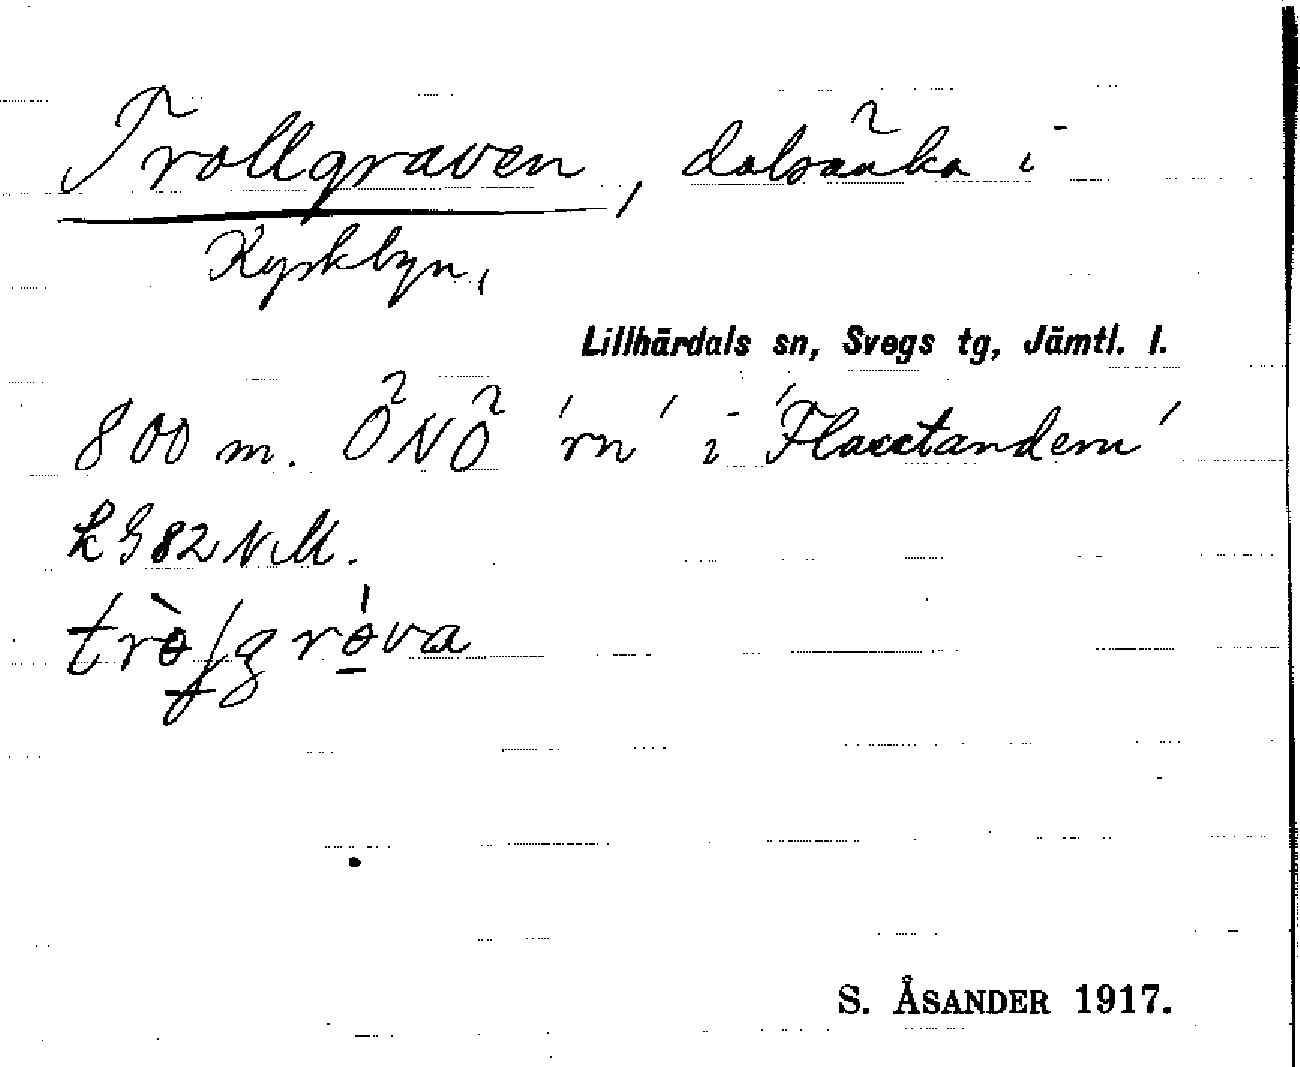 Trollgraven, dalsänka i
Kyrkbyn,
Lillhärdals sn, Svegs tg, Jämtl. l.
800 m. ÖNÖ 'rn' i 'Flasstandern'
k G 82 N M.
S. ÅSANDER 1917.